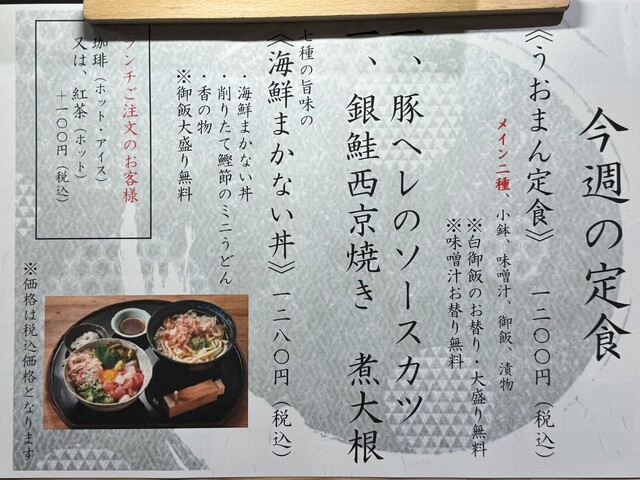 今週の定食
《うおまん定食》 一二〇〇円(税込)
メイン二種、小鉢、味噌汁、御飯、漬物
※白御飯のお替り・大盛り無料
※味噌汁お替り無料
一、豚ヘレのソースカツ
一、銀鮭西京焼き 煮大根
七種の旨味の
《海鮮まかない丼》 一二八〇円(税込)
・海鮮まかない丼
・削りたて鰹節のミニうどん
・香の物
※御飯大盛り無料
ランチご注文のお客様
珈琲(ホット・アイス)
又は、紅茶(ホット)
+一〇〇円(税込)
※価格は税込価格となります